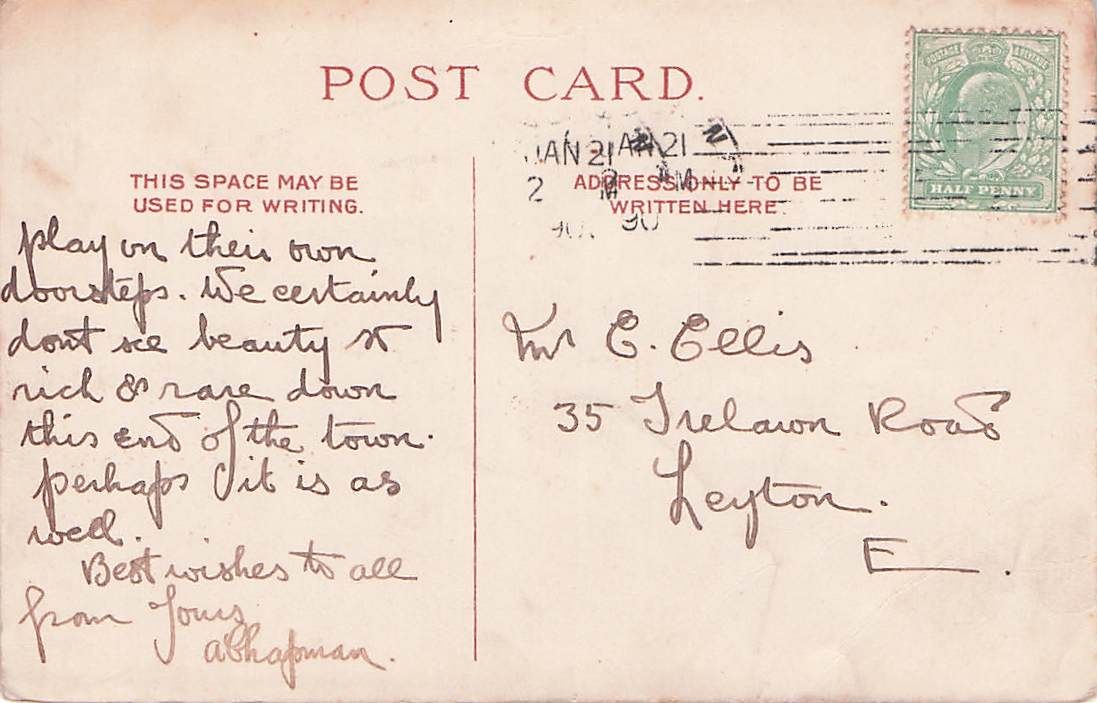 POST CARD.
POSTAGE REVENUE
HALF PENNY
JAN 21 JAN 21
2 PM
THIS SPACE MAY BE
USED FOR WRITING.
ADDRESS ONLY TO BE
WRITTEN HERE
play on their own
doorsteps. We certainly
dont see beauty st
rich & rare down
this end of the town.
perhaps it is as
well.
Best wishes to all
from Yours
AChapman.
Mr E. Ellis
35 Trelawn Road
Leyton.
E.